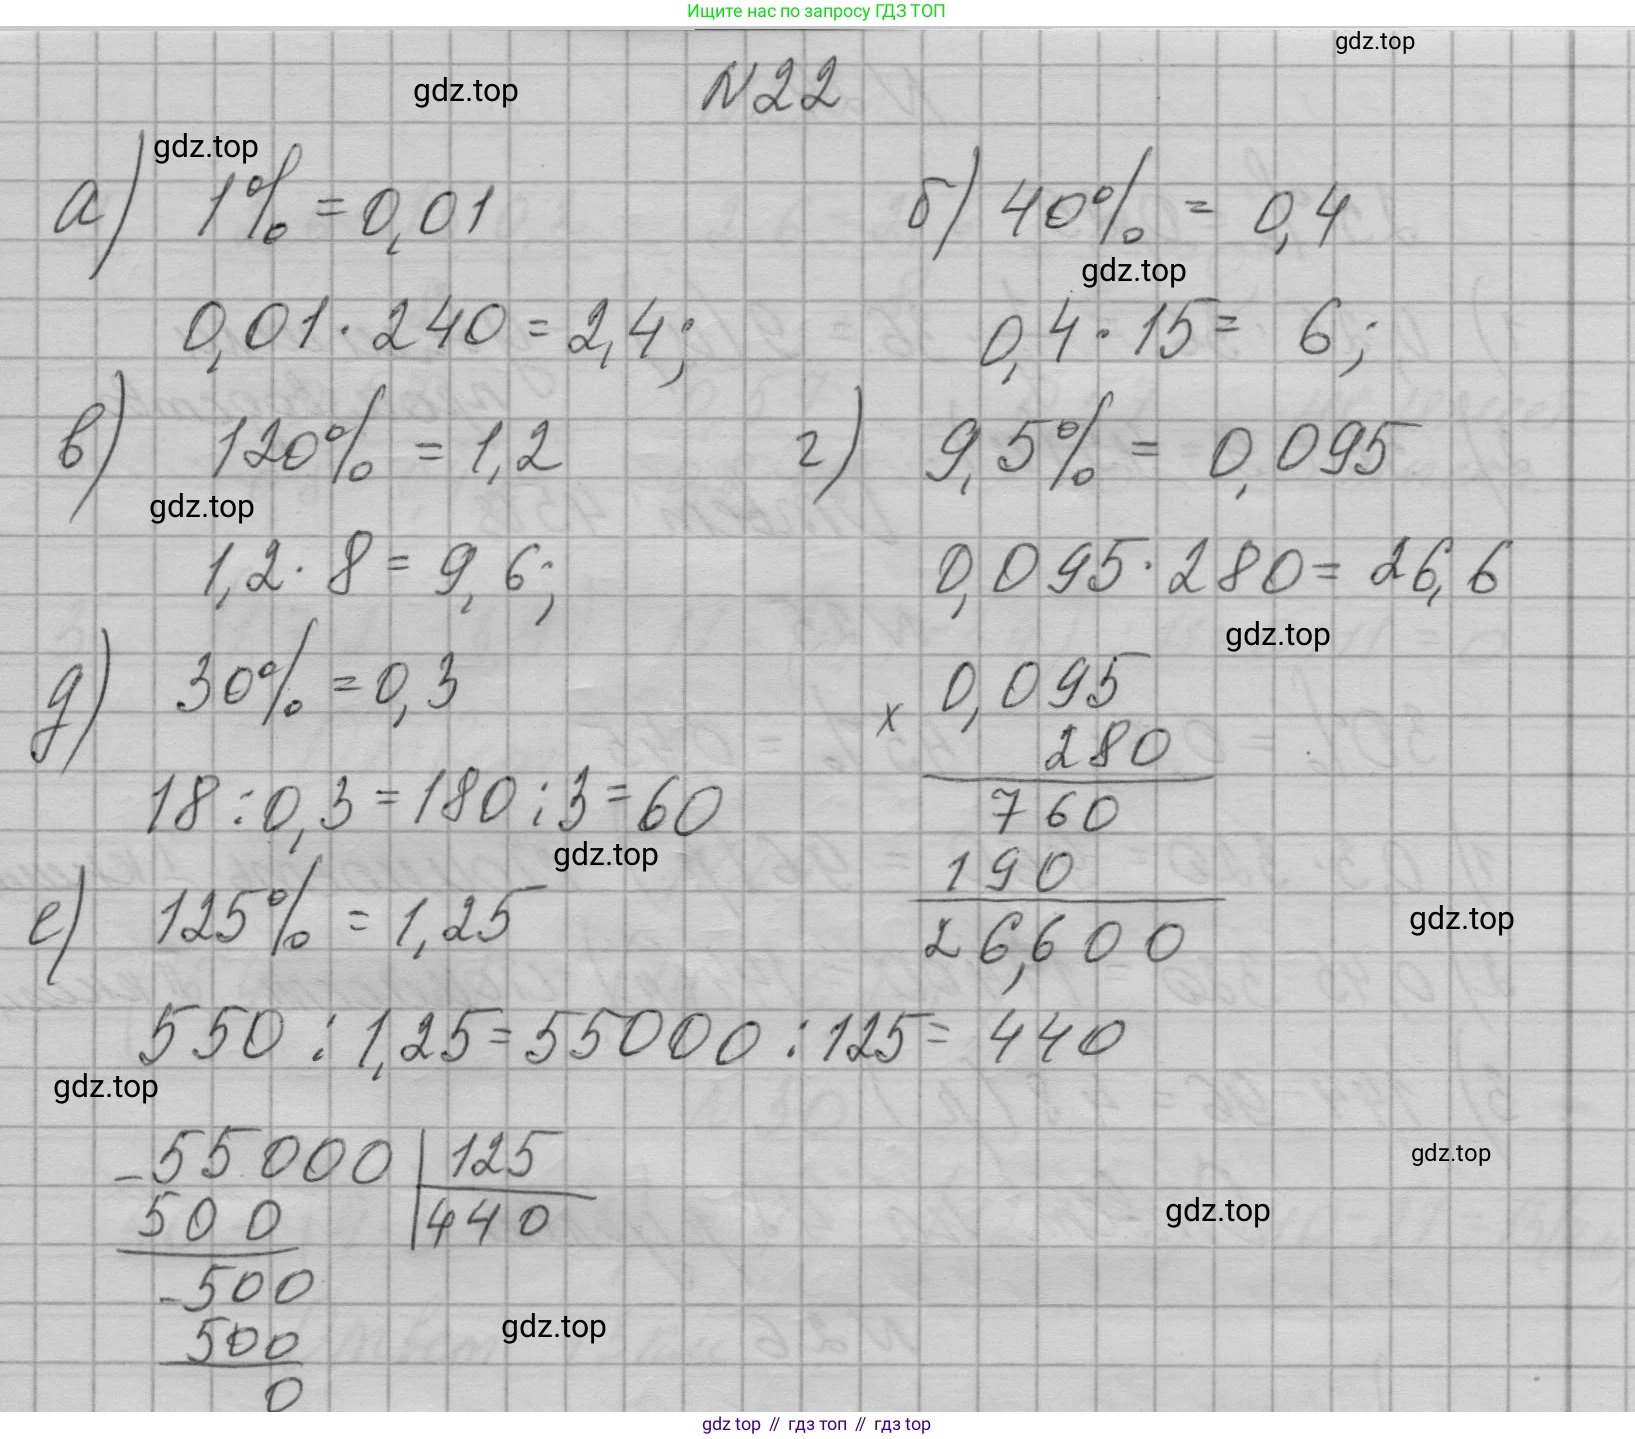 Ищите нас по запросу ГДЗ ТОП
gdz.top
gdz.top
№22
gdz.top
а) 1% = 0,01
б) 40% = 0,4
gdz.top
0,01 · 240 = 2,4;
0,4 · 15 = 6;
в) 120% = 1,2
г) 9,5% = 0,095
gdz.top
1,2 · 8 = 9,6;
0,095 · 280 = 26,6
gdz.top
д) 30% = 0,3
× 0,095
280
760
190
26,600
18 : 0,3 = 180 : 3 = 60
gdz.top
е) 125% = 1,25
gdz.top
550 : 1,25 = 55000 : 125 = 440
gdz.top
- 55000 | 125
500 | 440
gdz.top
gdz.top
- 500
500
0
gdz.top
gdz top // гдз топ // гдз top